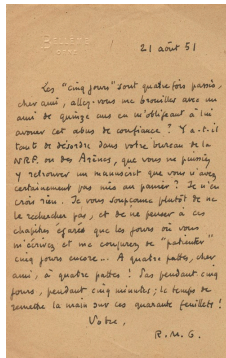 21 août 51
Les "cinq jours" sont quatre fois passés,
cher ami, allez-vous me brouiller avec un
ami de quinze ans en m'obligeant à lui
avouer cet abus de confiance ? Y a-t-il
tant de désordre dans votre bureau de la
NRF. ou des Arènes, que vous ne puissiez
y retrouver un manuscrit que vous n'avez
certainement pas mis au panier ? Je n'en
crois rien. Je vous soupçonne plutôt de ne
le rechercher pas, et de ne penser à ces
chapitres égarés que les jours où vous
m'écrivez et me conjurez de "patienter"
cinq jours encore... A quatre pattes, cher
ami, à quatre pattes ! Pas pendant cinq
jours, pendant cinq minutes ; le temps de
remettre la main sur ces quarante feuillets !
Votre,
R. M. G.